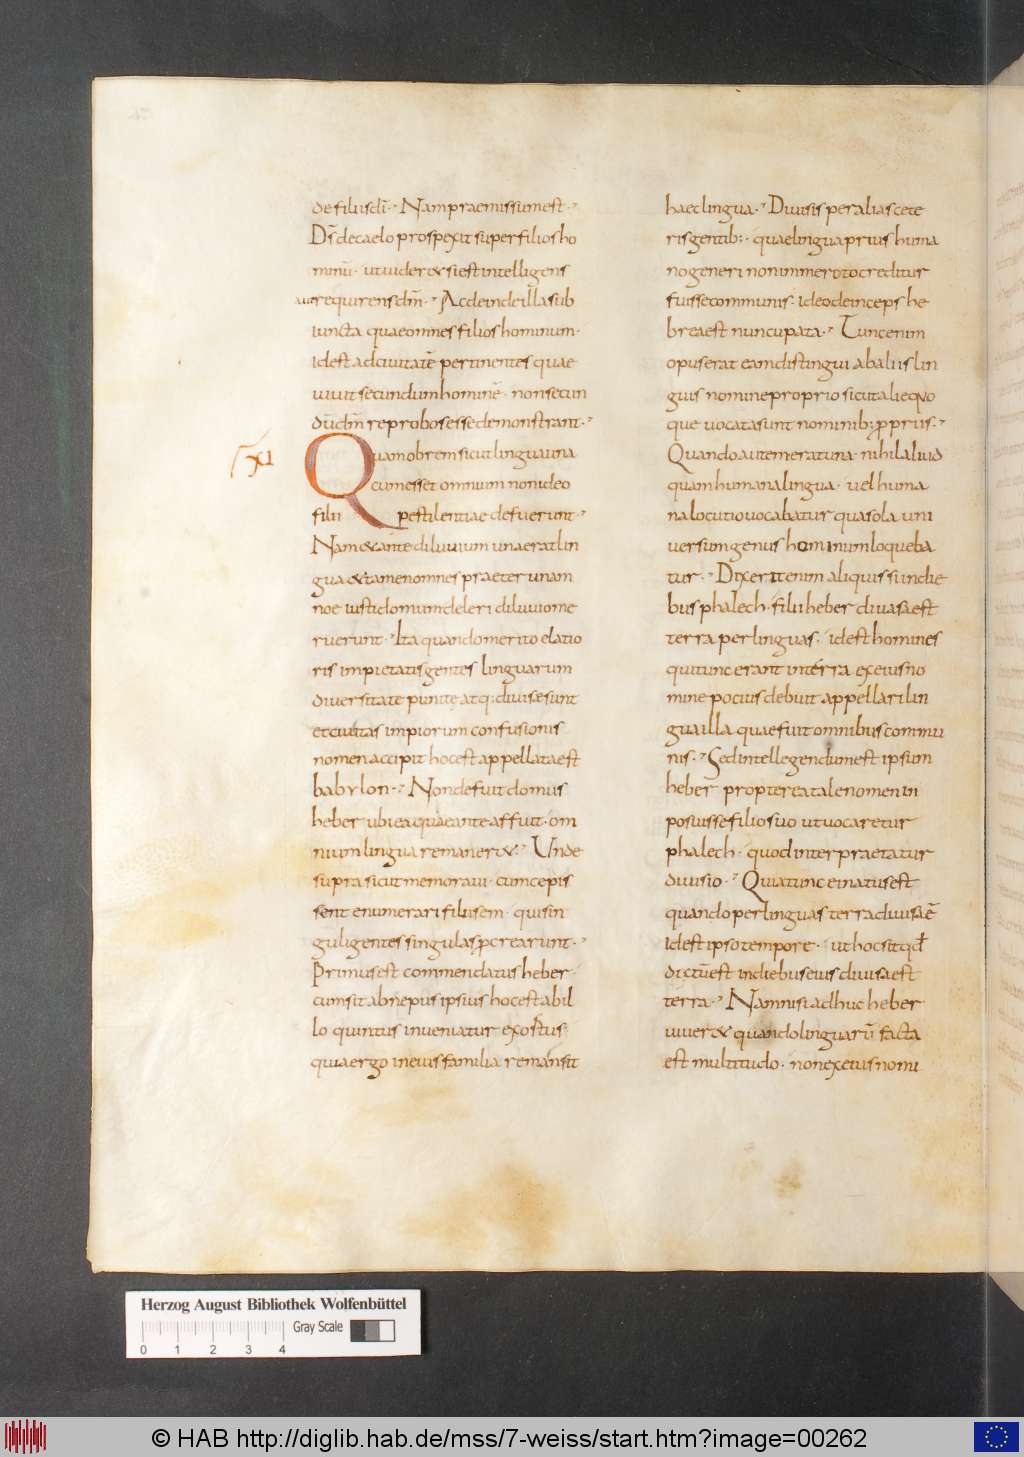 de filiis dī. Nam praemissum est.
Dꝰs de caelo prospexit super filios ho
minū. ut videret si est intelligens
aut requirens dm̄. Ac deinde illa sub
iuncta quae omnes filios hominum.
id est ad civitatē pertinentes quae
vivit secundum hominē. non secun
dū dm̄ reprobos esse demonstrant.
XI
Quam ob rem sicut lingua una
cum esset omnium non ideo
filii pestilentiae defuerunt.
Nam & ante diluvium una erat lin
gua & tamen omnes praeter unam
noe iusti domum deleri diluvio me
ruerunt. Ita quando merito elatio
ris impietatis gentes linguarum
diversitate punitę atq; divisae sunt
et civitas impiorum confusionis
nomen accipit hoc est appellata est
babylon. Non defuit domus
heber ubi ea quae ante affuit. om
nium lingua remaner&. Unde
supra sicut memoravi. cum cepis
sent enumerari filii sem. qui sin
guli gentes singulas ꝓcrearunt.
Primus est commendatus heber.
cum sit abnepus ipsius hoc est ab il
lo quintus inveniatur exortus.
quia ergo in eius familia remansit
haec lingua. Divisis per alias cete
ris gentib;. quae lingua prius huma
no generi non inmerito creditur
fuisse communis. ideo deinceps he
brea est nuncupata. Tunc enim
opus erat eam distingui ab aliis lin
guis nomine proprio sicut alie quo
que vocata sunt nominib; ꝓpriis.
Quando autem erat una. nihil aliud
quam humana lingua. vel huma
na locutio vocabatur qua sola uni
versum genus hominum loqueba
tur. Dixerit enim aliquis si in die
bus phalech. filii heber divisa est
terra per linguas. id est homines
qui tunc erant in terra ex eius no
mine pocius debuit appellari lin
gua illa quae fuit omnibus commu
nis. Sed intellegendum est ipsum
heber propterea tale nomen in
posuisse filio suo ut vocaretur
phalech. quod interpraetatur
divisio. Quia tunc ei natus est
quando per linguas terra divisa ē
id est ipso tempore. ut hoc sit qd
dictū est in diebus eius divisa est
terra. Nam nisi adhuc heber
viver& quando linguarū facta
est multitudo. non ex eius nomi
Herzog August Bibliothek Wolfenbüttel
Gray Scale
0 1 2 3 4
© HAB http://diglib.hab.de/mss/7-weiss/start.htm?image=00262